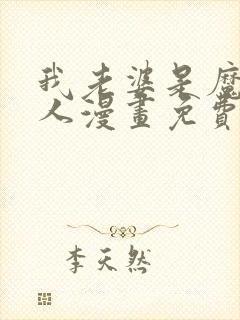 我老婆是魔
人漫畫免費
李天然